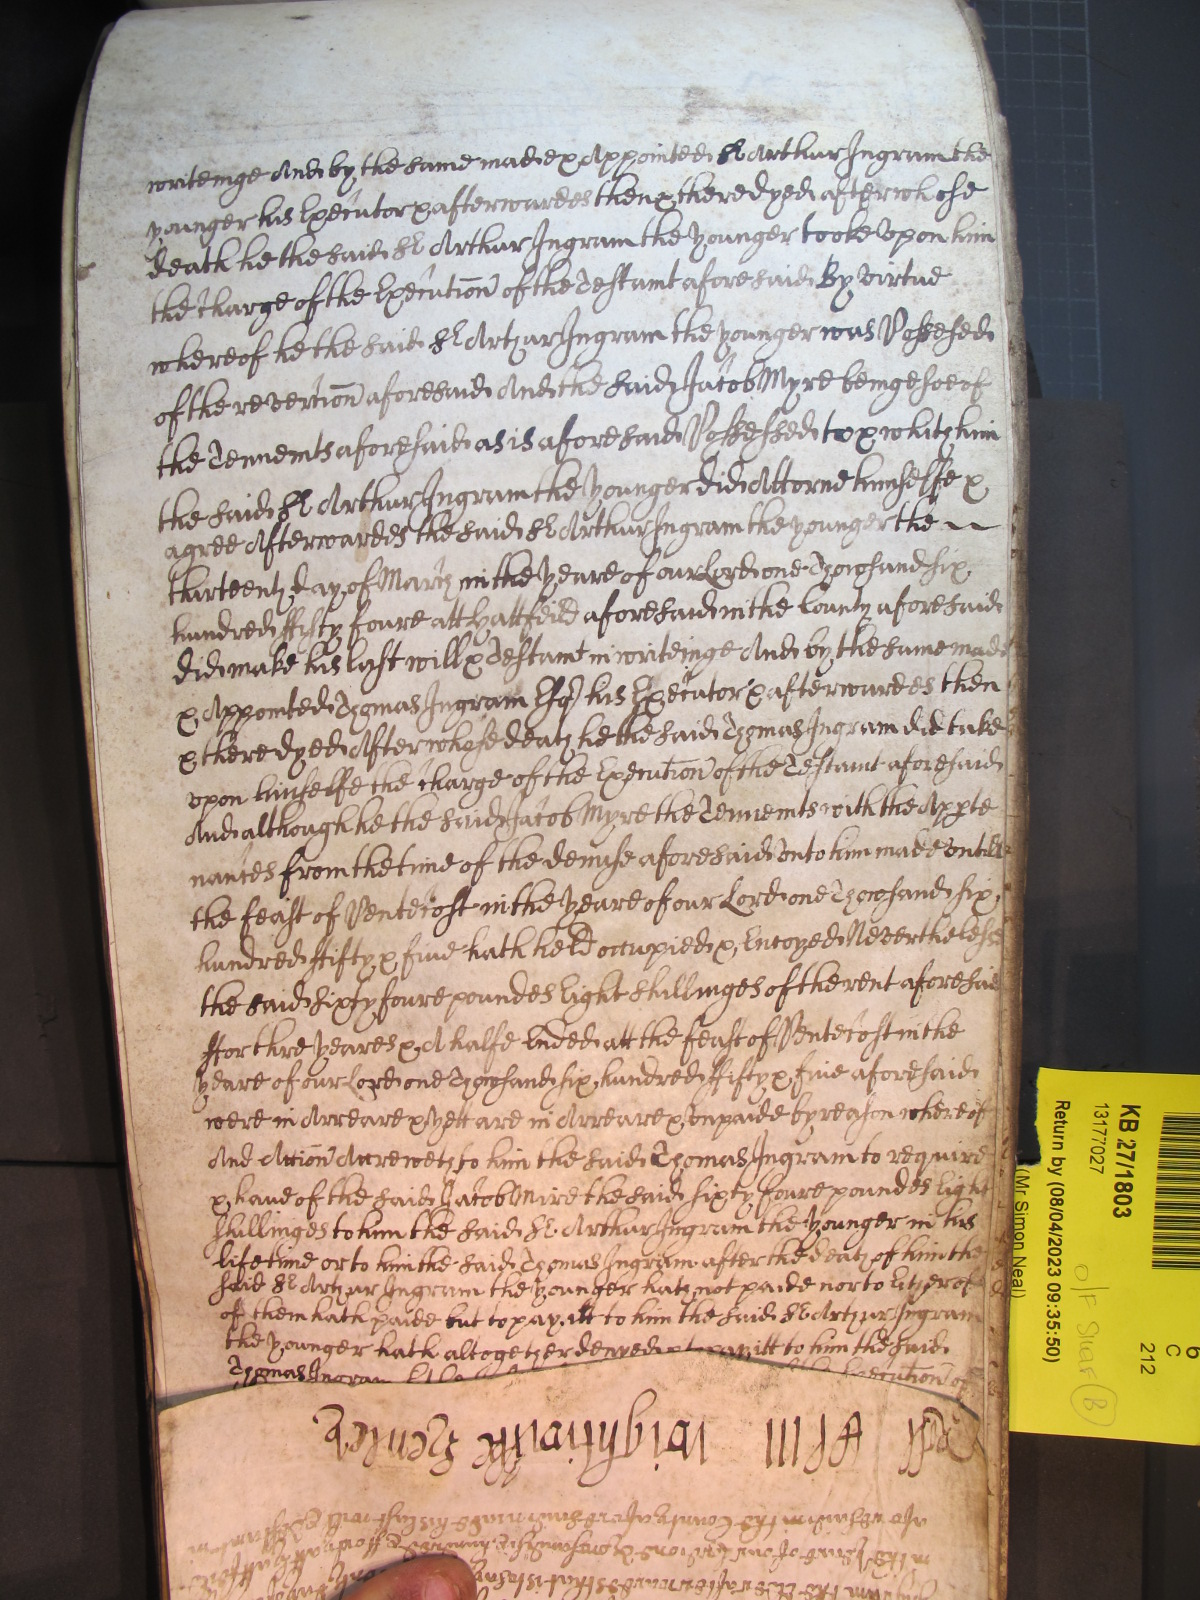 writeinge And by the same made & Appointed Sr Arthur Ingram the
younger his Executor & afterwardes then & there dyed after whose
death he the said Sr Arthur Ingram the younger tooke upon him
the Charge of the Execution of the Testamt aforesaid By virtue
whereof he the said Sr Arthur Ingram the younger was Possessed
of the revertion aforesaid And the said Jacob Myre beinge soe of
the Tennemts aforesaid as is aforesaid Possessed to & with him
the said Sr Arthur Ingram the younger did Attorne himselfe &
agree Afterwardes the said Sr Arthur Ingram the younger the
thirteenth day of March in the yeare of our Lord one Thowsand six
hundred ffifty foure att Hattfeild aforesaid in the County aforesaid
did make his last will & Testamt in writeinge And by the same made
& Appointed Thomas Ingram Esqr his Executor & afterwardes then
& there dyed After whose death he the said Thomas Ingram did take
upon himselfe the Charge of the Execution of the Testamt aforesaid
And although he the said Jacob Myre the Tennemts with the Appte
nances from the time of the demise aforesaid unto him made untill
the feast of Pentecost in the yeare of our Lord one Thowsand six
hundred ffifty & five hath held occupied & Enioyed Nevertheless
the said sixty foure poundes Eight shillinges of the rent aforesaid
ffor thre yeares & A halfe Ended att the feast of Pentecost in the
yeare of our Lord one Thowsand six hundred ffifty & five aforesaid
were in Arreare & yett are in Arreare & unpaide by reason whereof
And Action Accreweth to him the said Thomas Ingram to require
& have of the said Jacob Mire the said sixty foure poundes Eight
shillinges to him the said Sr Arthur Ingram the younger in his
lifetime or to him the said Thomas Ingram after the death of him the
said Sr Arthur Ingram the younger hath not paide nor to Either of
of them hath paide but to pay itt to him the said Sr Arthur Ingram
the younger hath altogether denyed & to pay itt to him the said
Thomas Ingram
Execution of
KB 27/1803
13177027
Return by (08/04/2023 09:35:50)
(Mr Simon Neal)
6
C
212
B